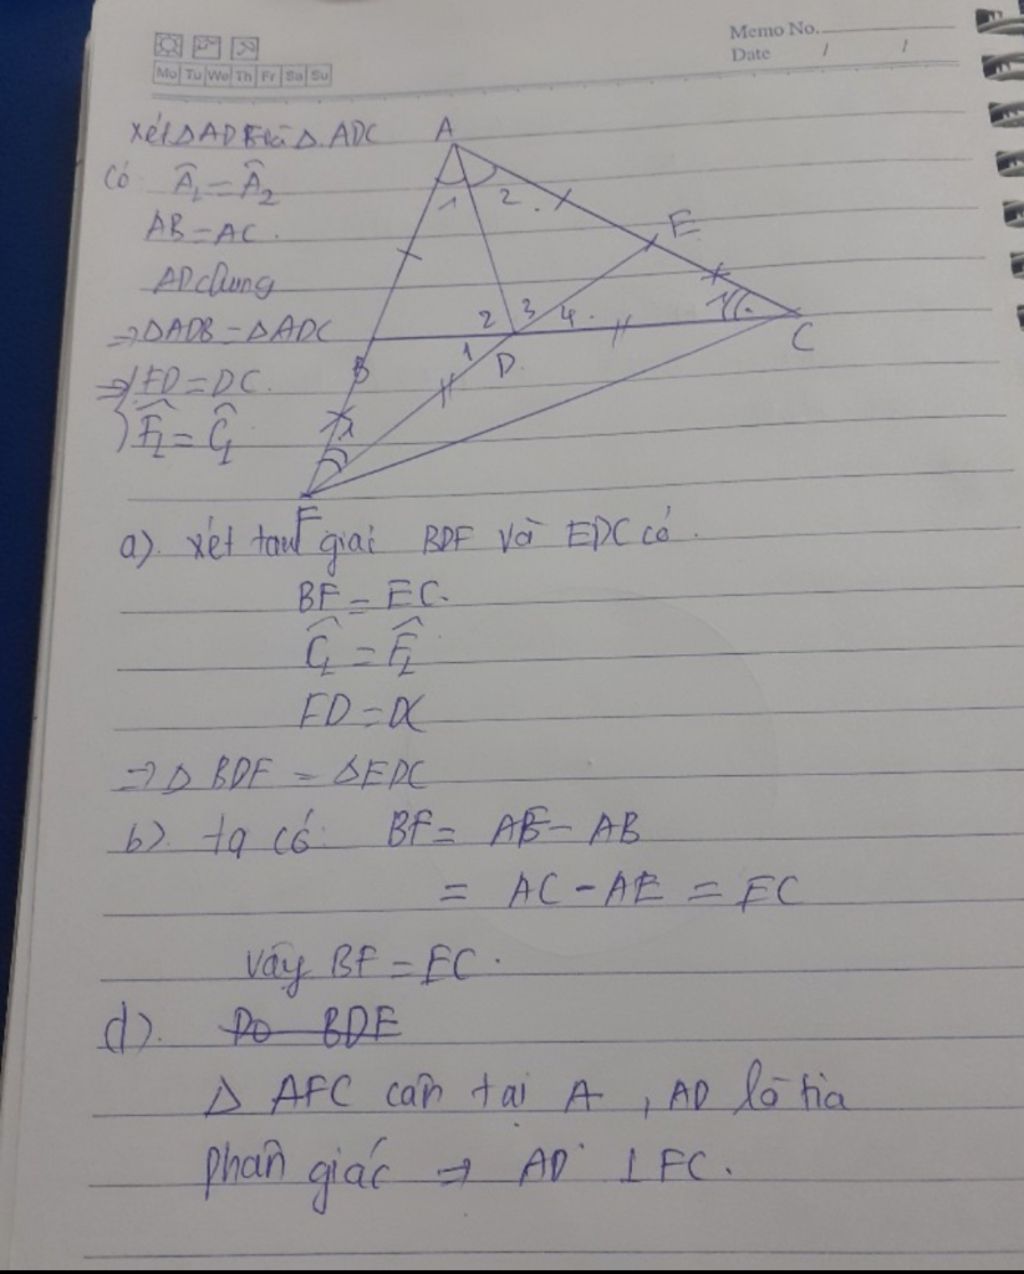 Memo No.
Date / /
Mo Tu We Th Fr Sa Su
xét △ADF và △ADC
Có Â₁ = Â₂
AB = AC.
AD chung
⇒ △ADB = △ADC
⇒ FD = DC.
F̂₁ = Ĉ₁
A
1 2
E
2 3 4
1
1
B
D
C
1
F
a). xét tam giác BDF và EDC có.
BF = EC.
Ĉ₁ = F̂₁
FD = DC
⇒ △ BDF = △EDC
b). ta có: BF = AF - AB
= AC - AE = EC
vậy BF = EC.
d). Do BDF
△ AFC cân tại A, AD là tia
phân giác ⇒ AD ⊥ FC.